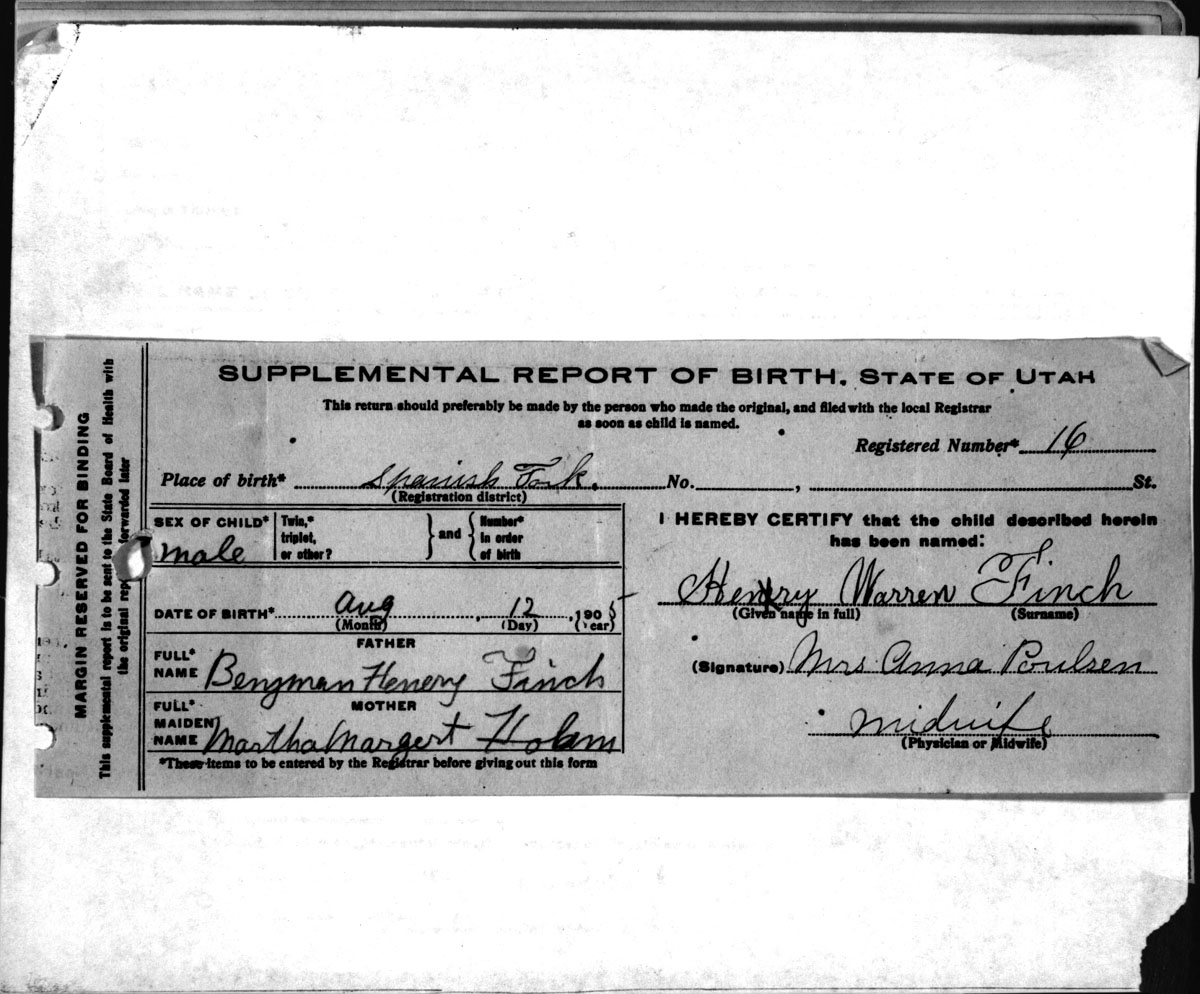 SUPPLEMENTAL REPORT OF BIRTH. STATE OF UTAH
This return should preferably be made by the person who made the original, and filed with the local Registrar
as soon as child is named.
Registered Number* 16
Place of birth* Spanish Fork. No. , St.
(Registration district)
MARGIN RESERVED FOR BINDING
This supplemental report is to be sent to the State Board of Health with
the original report forwarded later
SEX OF CHILD* male
Twin,*
triplet,
or other?
} and {
Number*
in order
of birth
DATE OF BIRTH* Aug , 12 , 1905
(Month) (Day) (Year)
FATHER
FULL*
NAME Bengman Henery Finch
MOTHER
FULL*
MAIDEN
NAME Martha Margert Holam
*These items to be entered by the Registrar before giving out this form
I HEREBY CERTIFY that the child described herein
has been named:
Henry Warren Finch
(Given name in full) (Surname)
(Signature) Mrs Anna Poulsen
midwife
(Physician or Midwife)